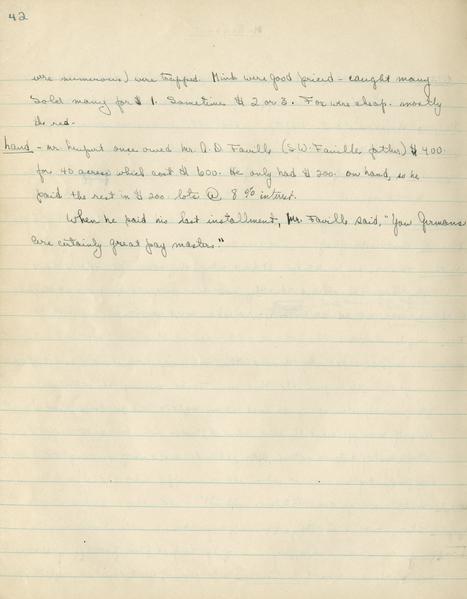 42
were numerous) were trapped. Mink were good priced - caught many
Sold many for $1. Sometimes $2 or 3. Fox were cheap. mostly
the red.
hand - Mr. once owed Mr. A.D. Faville (S.W. Faville father) $400.
for 40 acres which cost $600. He only had $200. on hand, so he
paid the rest in $200. lots @ 8% interest.
When he paid his last installment, Mr. Faville said, "You Germans
are certainly great pay masters."